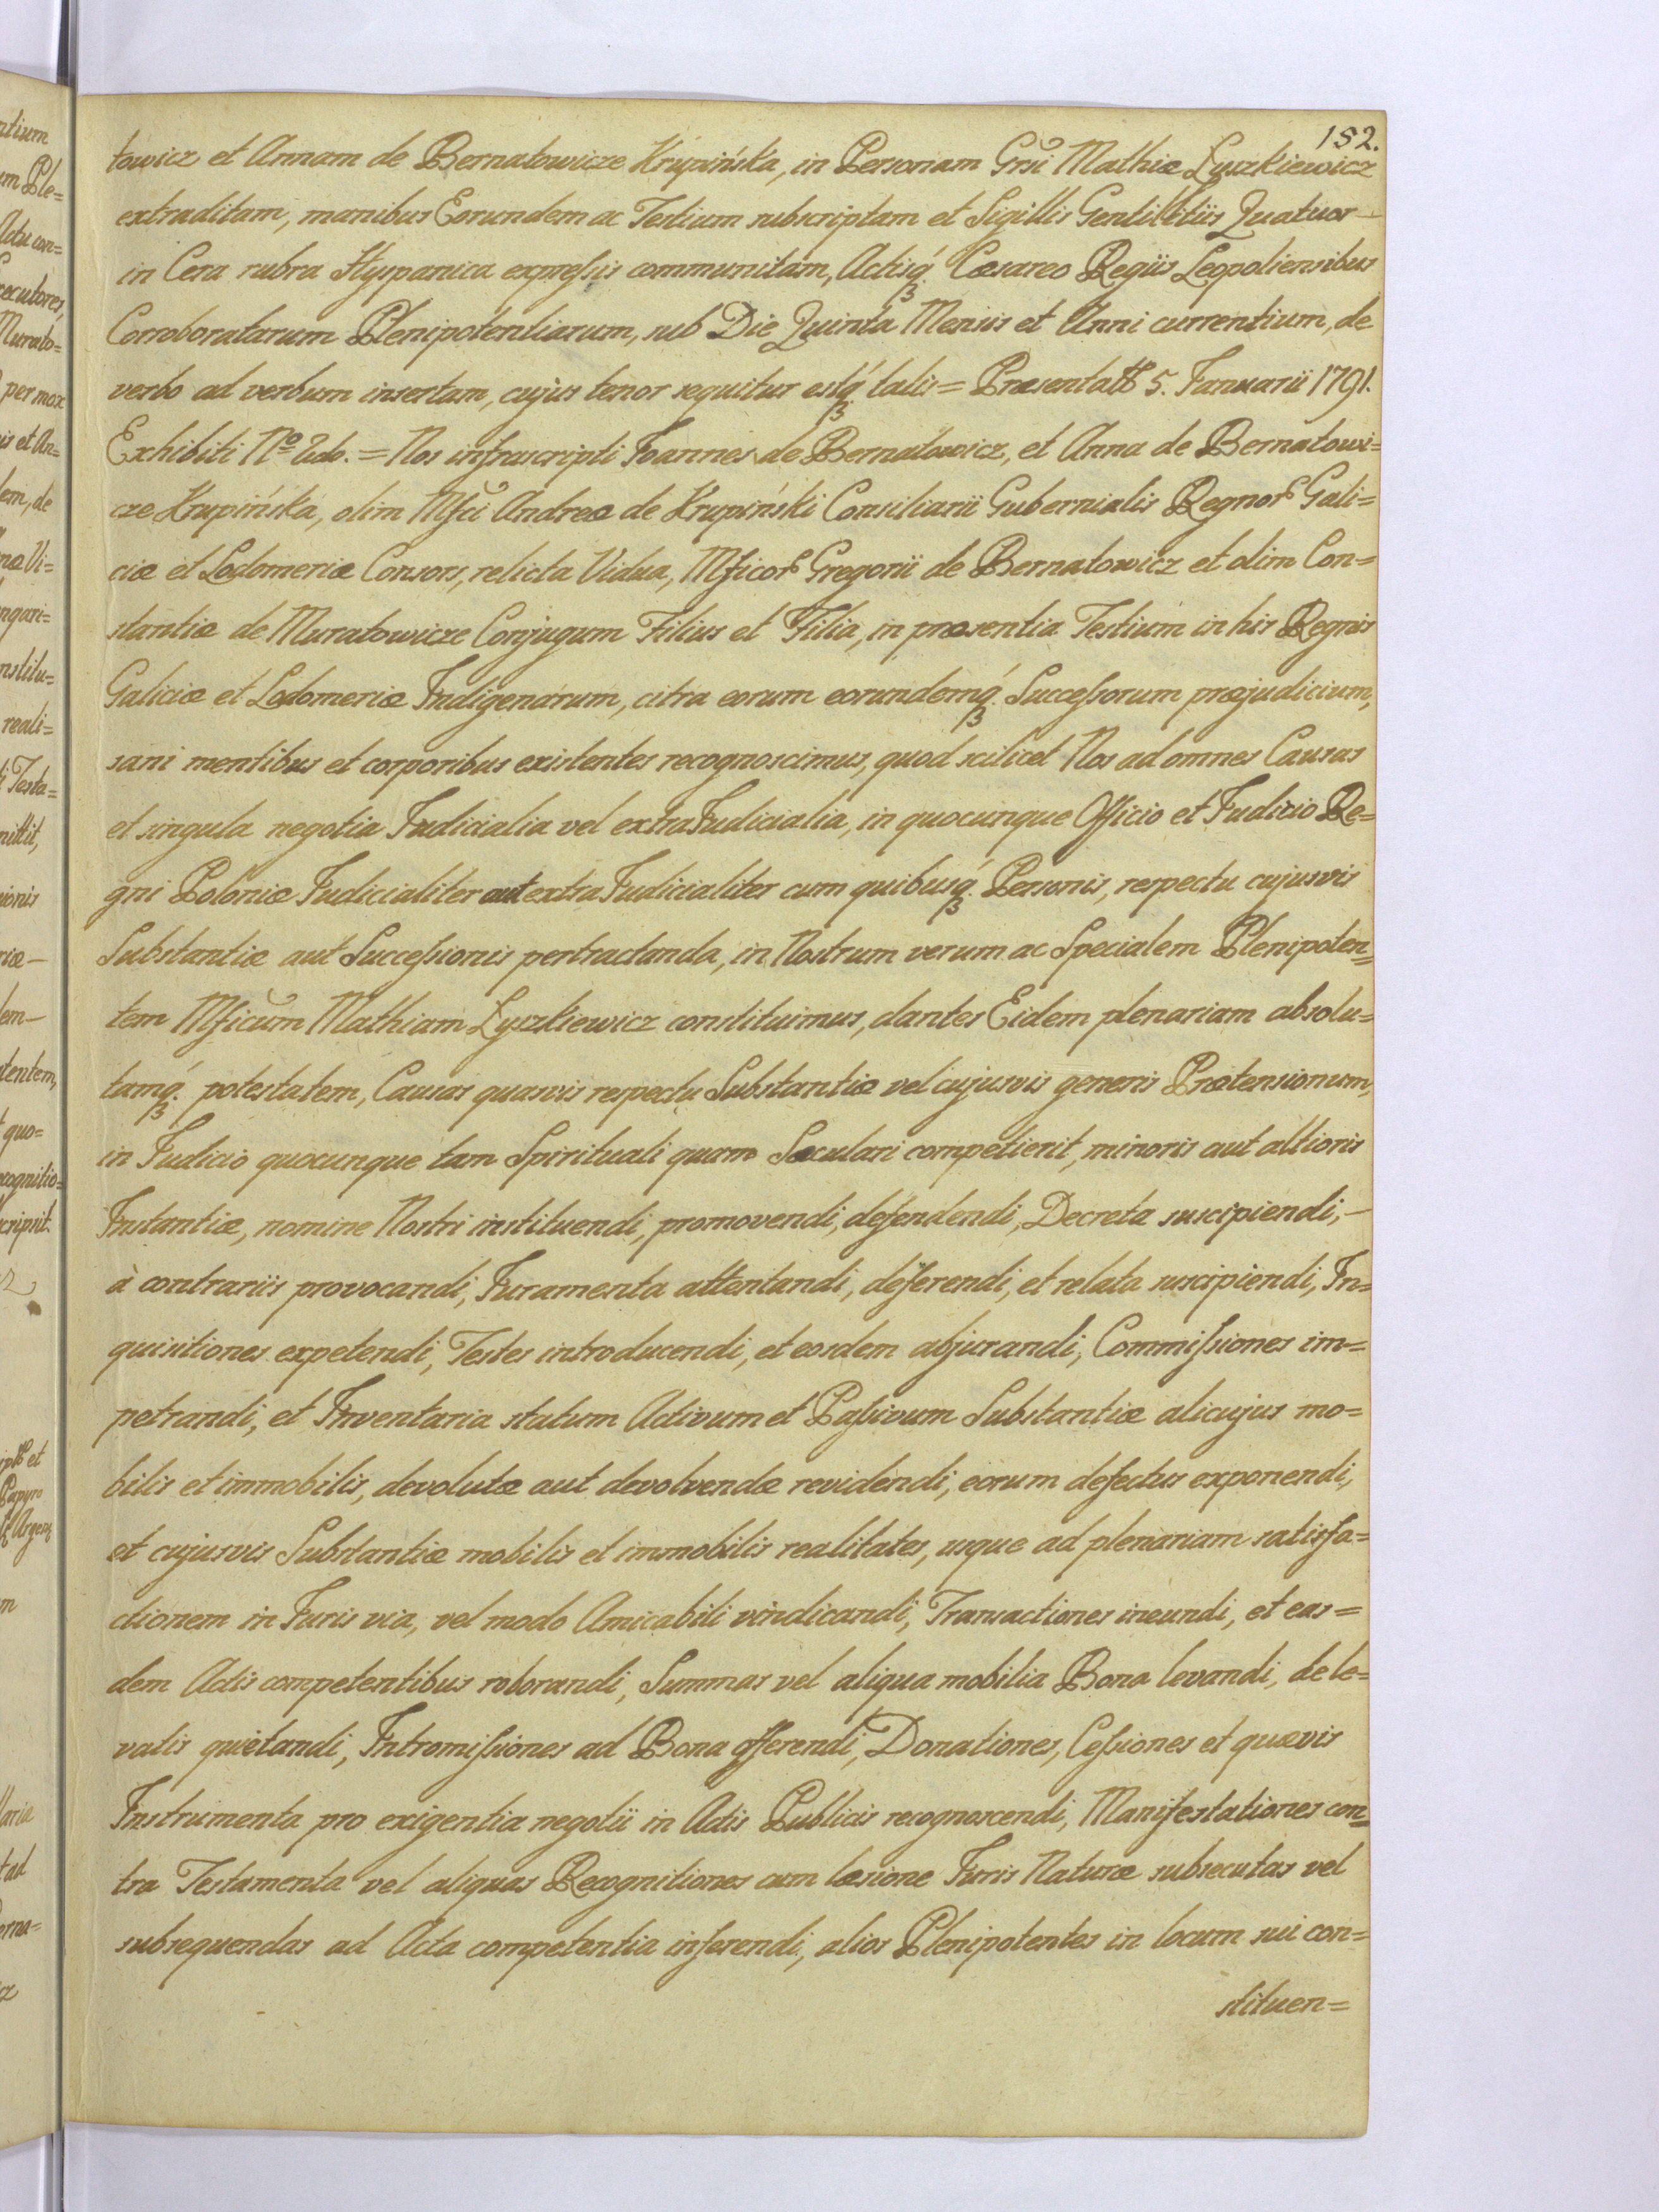 152.
towicz et Annam de Bernatowicze Krupińska, in Personam Grsi Mathiæ Łyszkiewicz
extraditam, manibus Eorundem ac Testium subscriptam et Sigillis Gentilitiis Quatuor —
in Cera rubra Hyspanica expressis communitam, Actisq́ꝫ. Cæsareo Regiis Leopoliensibus
Corroboratarum Plenipotentiarum, sub Die Quinta Mensis et Anni currentium, de
verbo ad verbum insertam, cujus tenor sequitur estq́ꝫ talis = Præsentatt 5. Januarii 1791.
Exhibiti Nº 2do. = Nos infrascripti Joannes de Bernatowicz, et Anna de Bernatowi=
cze Krupińska, olim Mfci Andreæ de Krupiński Consiliarii Gubernialis Regnor Gali=
ciæ et Lodomeriæ Consors, relicta Vidua, Mficor Gregorii de Bernatowicz et olim Con=
stantiæ de Muratowicze Conjugum Filius et Filia, in præsentia Testium in his Regnis
Galiciæ et Lodomeriæ Indigenarum, citra eorum eorundemq́ꝫ. Successorum præjudicium,
sani mentibus et corporibus existentes recognoscimus, quod scilicet Nos ad omnes Causas
et singula negotia Judicialia vel extraJudicialia, in quocunque Officio et Judicio Re=
gni Poloniæ Judicialiter aut extraJudicialiter cum quibusq́ꝫ. Personis, respectu cujusvis
Substantiæ aut Successionis pertractanda, in Nostrum verum ac Specialem Plenipoten=
tem Mficum Mathiam Łyszkiewicz constituimus, dantes Eidem plenariam absolu=
tamq́ꝫ. potestatem, Causas quasvis respectu Substantiæ vel cujusvis generis Prætensionum,
in Judicio quocunque tam Spirituali quam Sæculari competierit, minoris aut altioris
Instantiæ, nomine Nostri instituendi, promovendi, defendendi, Decreta suscipiendi, —
à contrariis provocandi, Juramenta attentandi, deferendi, et relata suscipiendi, In=
quisitiones expetendi, Testes introducendi, et eosdem abjurandi, Commissiones im=
petrandi, et Inventaria statum Activum et Passivum Substantiæ alicujus mo=
bilis et immobilis, devolutæ aut devolvendæ revidendi, eorum defectus exponendi,
et cujusvis Substantiæ mobilis et immobilis realitates, usque ad plenariam satisfa=
ctionem in Juris via, vel modo Amicabili vindicandi, Transactiones ineundi, et eas=
dem Actis competentibus roborandi, Summas vel aliqua mobilia Bona levandi, de le=
vatis quietandi, Intromissiones ad Bona offerendi, Donationes, Cessiones et quævis
Instrumenta pro exigentia negotii in Actis Publicis recognoscendi, Manifestationes con=
tra Testamenta vel aliquas Recognitiones cum læsione Juris Naturæ subsecutas vel
subsequendas ad Acta competentia inferendi, alios Plenipotentes in locum sui con=
stituen=